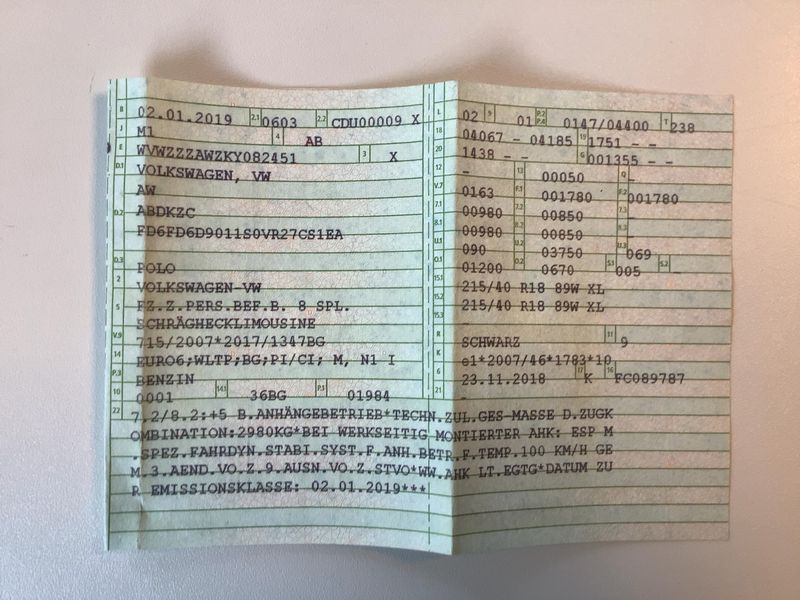 B 02.01.2019 2.1 0603 2.2 CDU00009 X
J M1 4 AB
E WVWZZZAWZKY082451 3 X
D.1 VOLKSWAGEN, VW
AW
D.2 ABDKZC
FD6FD6D9011S0VR27CS1EA
D.3 POLO
2 VOLKSWAGEN-VW
5 FZ.Z.PERS.BEF.B. 8 SPL.
SCHRÄGHECKLIMOUSINE
V.9 715/2007*2017/1347BG
14 EURO6;WLTP;BG;PI/CI; M, N1 I
P.3 BENZIN
10 0001 14.1 36BG P.1 01984
L 02 9 01 P.2 P.4 0147/04400 T 238
18 04067 - 04185 19 1751 - -
20 1438 - - G 001355 - -
12 - 13 00050 Q -
V.7 0163 F.1 001780 F.2 001780
7.1 00980 7.2 00850 7.3 -
8.1 00980 8.2 00850 8.3 -
U.1 090 U.2 03750 U.3 069
O.1 01200 O.2 0670 S.1 005 S.2 -
15.1 215/40 R18 89W XL
15.2 215/40 R18 89W XL
15.3 -
R SCHWARZ 11 9
K e1*2007/46*1783*10
6 23.11.2018 17 K 16 FC089787
21 -
22 7.2/8.2:+5 B.ANHÄNGEBETRIEB*TECHN.ZUL.GES-MASSE D.ZUGK
OMBINATION:2980KG*BEI WERKSEITIG MONTIERTER AHK: ESP M
.SPEZ.FAHRDYN.STABI.SYST.F.ANH.BETR.F.TEMP.100 KM/H GE
M.3.AEND.VO.Z.9.AUSN.VO.Z.STVO*WW.AHK LT.EGTG*DATUM ZU
R EMISSIONSKLASSE: 02.01.2019***